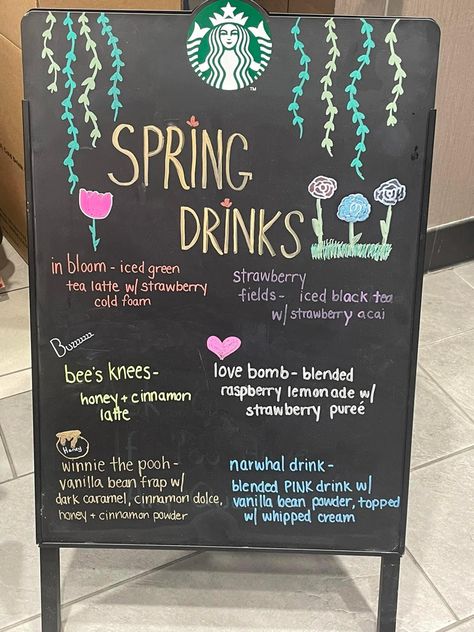 SPRING
DRINKS
in bloom - iced green
tea latte w/ strawberry
cold foam
strawberry
fields - iced black tea
w/ strawberry acai
Buzzzzzz
bee's knees -
honey + cinnamon
latte
love bomb - blended
raspberry lemonade w/
strawberry pureé
Honey
winnie the pooh -
vanilla bean frap w/
dark caramel, cinnamon dolce,
honey + cinnamon powder
narwhal drink -
blended PINK drink w/
vanilla bean powder, topped
w/ whipped cream